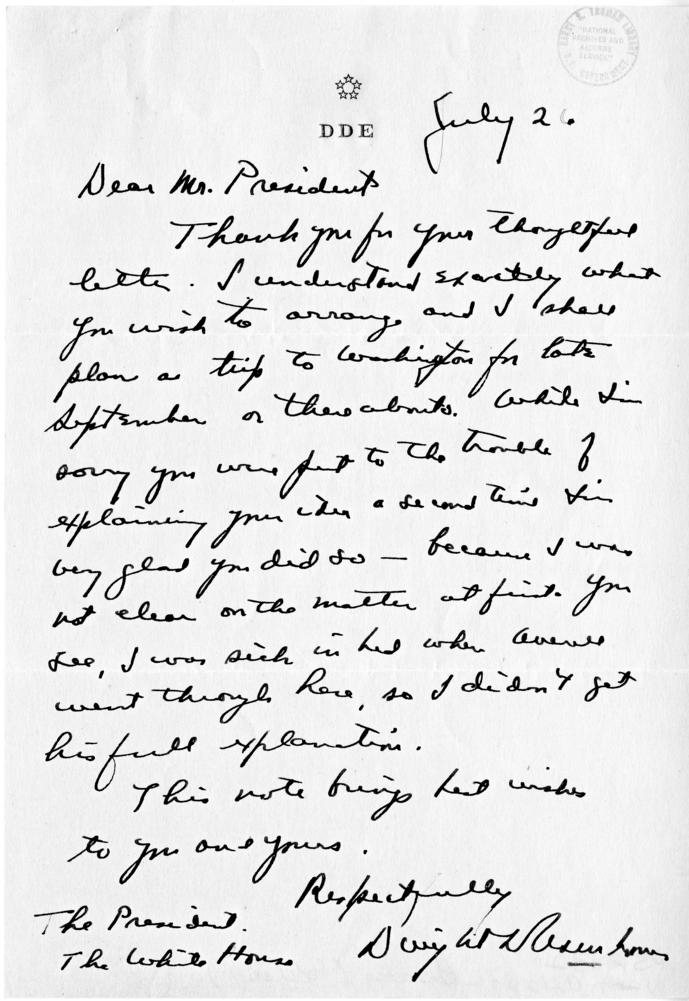 HARRY S. TRUMAN LIBRARY
"NATIONAL
ARCHIVES AND
RECORDS
SERVICE"
U.S. GOVERNMENT
DDE
July 26
Dear Mr. President
Thank you for your thoughtful
letter. I understand exactly what
you wish to arrange and I shall
plan a trip to Washington for late
September or thereabouts. While I'm
sorry you were put to the trouble of
explaining your idea a second time I'm
very glad you did so — because I was
not clear on the matter at first. You
see, I was sick in bed when
went through here, so I didn't get
his full explanation.
This note brings best wishes
to you and yours.
Respectfully
Dwight D Eisenhower
The President.
The White House